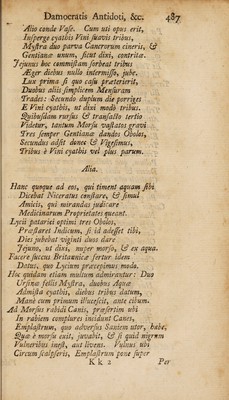 Damocratis Antidoti, &c. 487
Alio conde Vase. Cum uti opus erit,
Insperge cyathis Vini suavis tribus,
Mystra duo parva Cancrorum cineris, &
Gentianæ unum, sicut dixi, contritæ.
Jejunus hoc commistam sorbeat tribus
Æger diebus nullo intermisso, jube.
Lux prima si quo casu præterierit,
Duobus aliis simplicem Mensuram
Trades: Secundo duplum die porriges
E Vini cyathis, ut dixi modo tribus.
Quibusdam rursus & transacto tertio
Videtur, tantum Morsu vastatos gravi
Tres semper Gentianæ dandos Obolos,
Secundus adsit donec & Vigesimus,
Tribus è Vini cyathis vel plus parum.
Alia.
Hanc quoque ad eos, qui timent aquam sibi
Dicebat Niceratus constare, & simul
Amicis, qui mirandas judicare
Medicinarum Proprietates queant.
Lycii patarici optimi tres Obolos,
Præstaret Indicum, si id adesset tibi,
Dies jubebat viginti duos dare
Jejuno, ut dixi, nuper morso, & ex aqua.
Facere succus Britannicæ fertur idem
Datus, quo Lycium præcepimus modo.
Hoc quidam etiam multum admirantur: Duo
Ursinæ fellis Mystra, duobus Aquæ
Admista cyathis, diebus tribus datum,
Mane cum primum illucescit, ante cibum.
Ad Morsus rabidi Canis, præsertim ubi
In rabiem complures incidunt Canes,
Emplastrum, quo adversus Saniem utor, habe,
Quæ è morsu exit, juvabit, & si quid nigrum
Vulneribus inest, aut livens. Vulcus ubi
Circum scalpseris, Emplastrum pone super
K k 2 Per